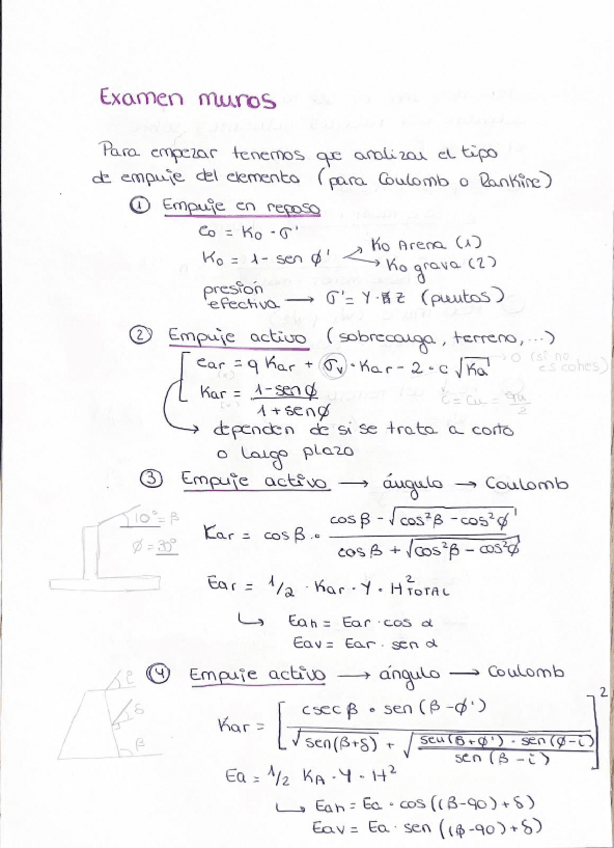 Examen muros
Para empezar tenemos que analizar el tipo
de empuje del elemento (para Coulomb o Rankine)
① Empuje en reposo
eo = Ko · σ'
Ko = 1 - sen φ' → Ko Arena (1)
→ Ko grava (2)
presión
efectiva → σ' = γ · z (puntos)
② Empuje activo (sobrecarga, terreno, ...)
ear = q Kar + σv · Kar - 2 · c √Ka
→ 0 (si no es cohes)
Kar = 1-senφ / 1+senφ
c = Cu = qu/2
→ dependen de si se trata a corto
o largo plazo
③ Empuje activo → ángulo → Coulomb
10° = β
φ = 30°
Kar = cosβ · cosβ - √cos²β - cos²φ' / cosβ + √cos²β - cos²φ
Ear = 1/2 · Kar · γ · H²TOTAL
↳ Eah = Ear · cos α
Eav = Ear · sen α
④ Empuje activo → ángulo → Coulomb
δ
β
Kar = [ csecβ · sen(β-φ') / √sen(β+δ) + √sen(β+φ') · sen(φ-i) / sen(β-i) ]²
Ea = 1/2 KA · γ · H²
↳ Eah = Ea · cos((β-90)+δ)
Eav = Ea · sen((β-90)+δ)